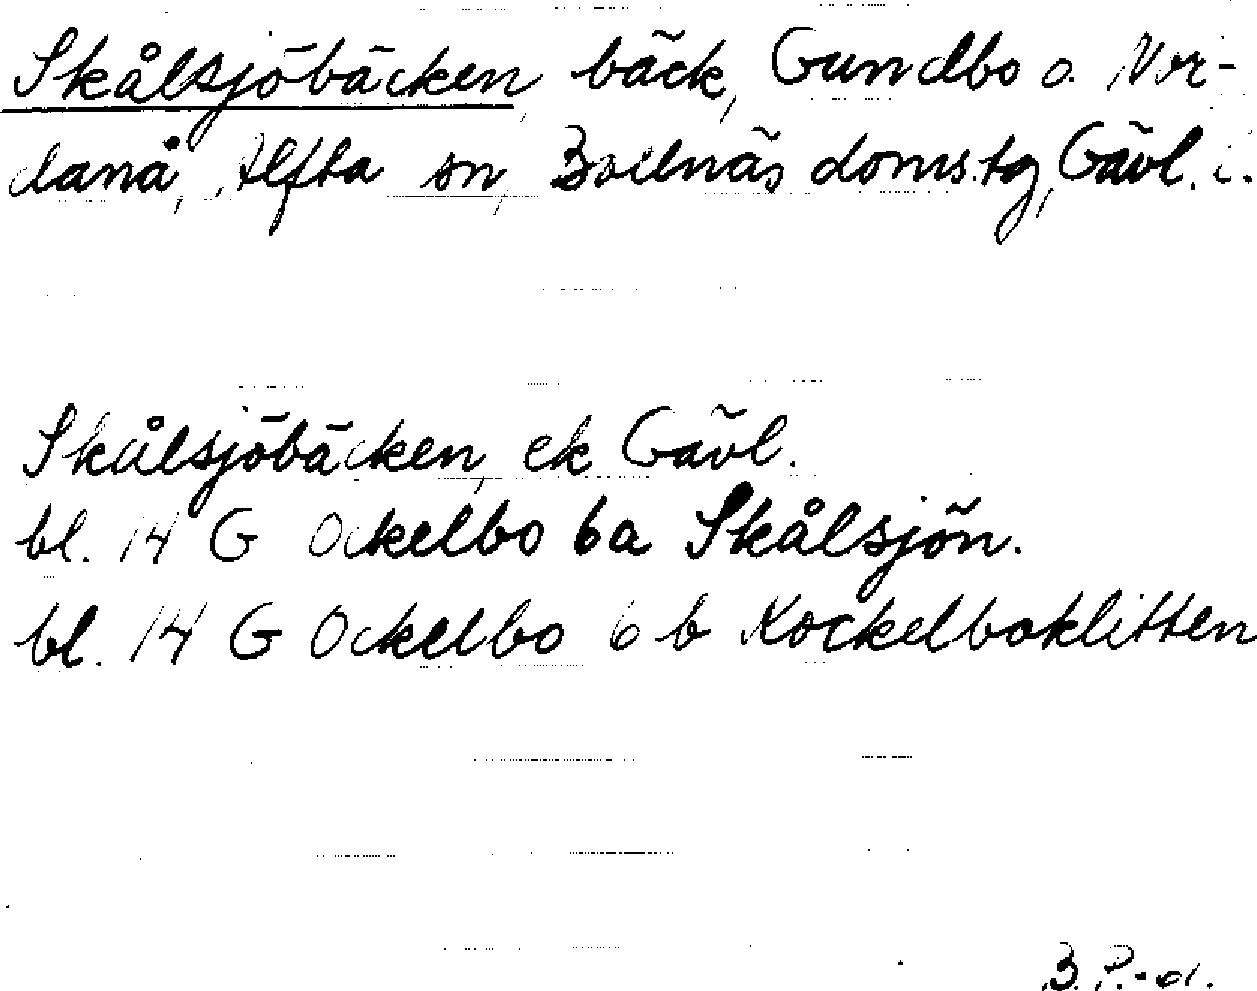 Skålsjöbäcken, bäck, Gundbo o. Nor-
danå, Alfta sn, Bollnäs doms.tg, Gävl. l.
Skålsjöbäcken, ek Gävl.
bl. 14 G Ockelbo 6a Skålsjön.
bl. 14 G Ockelbo 6 b Kockelboklitten
B. P:-d.